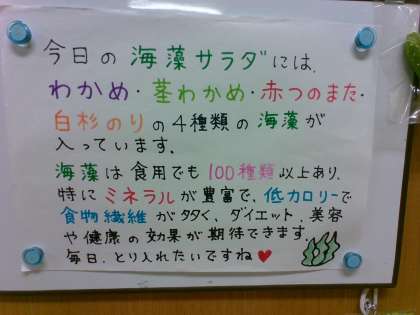 今日の海藻サラダには、
わかめ・茎わかめ・赤つのまた・
白杉のりの4種類の海藻が
入っています。
海藻は食用でも100種類以上あり、
特にミネラルが豊富で、低カロリーで
食物繊維が多く、ダイエット、美容
や健康の効果が期待できます。
毎日、とり入れたいですね♥